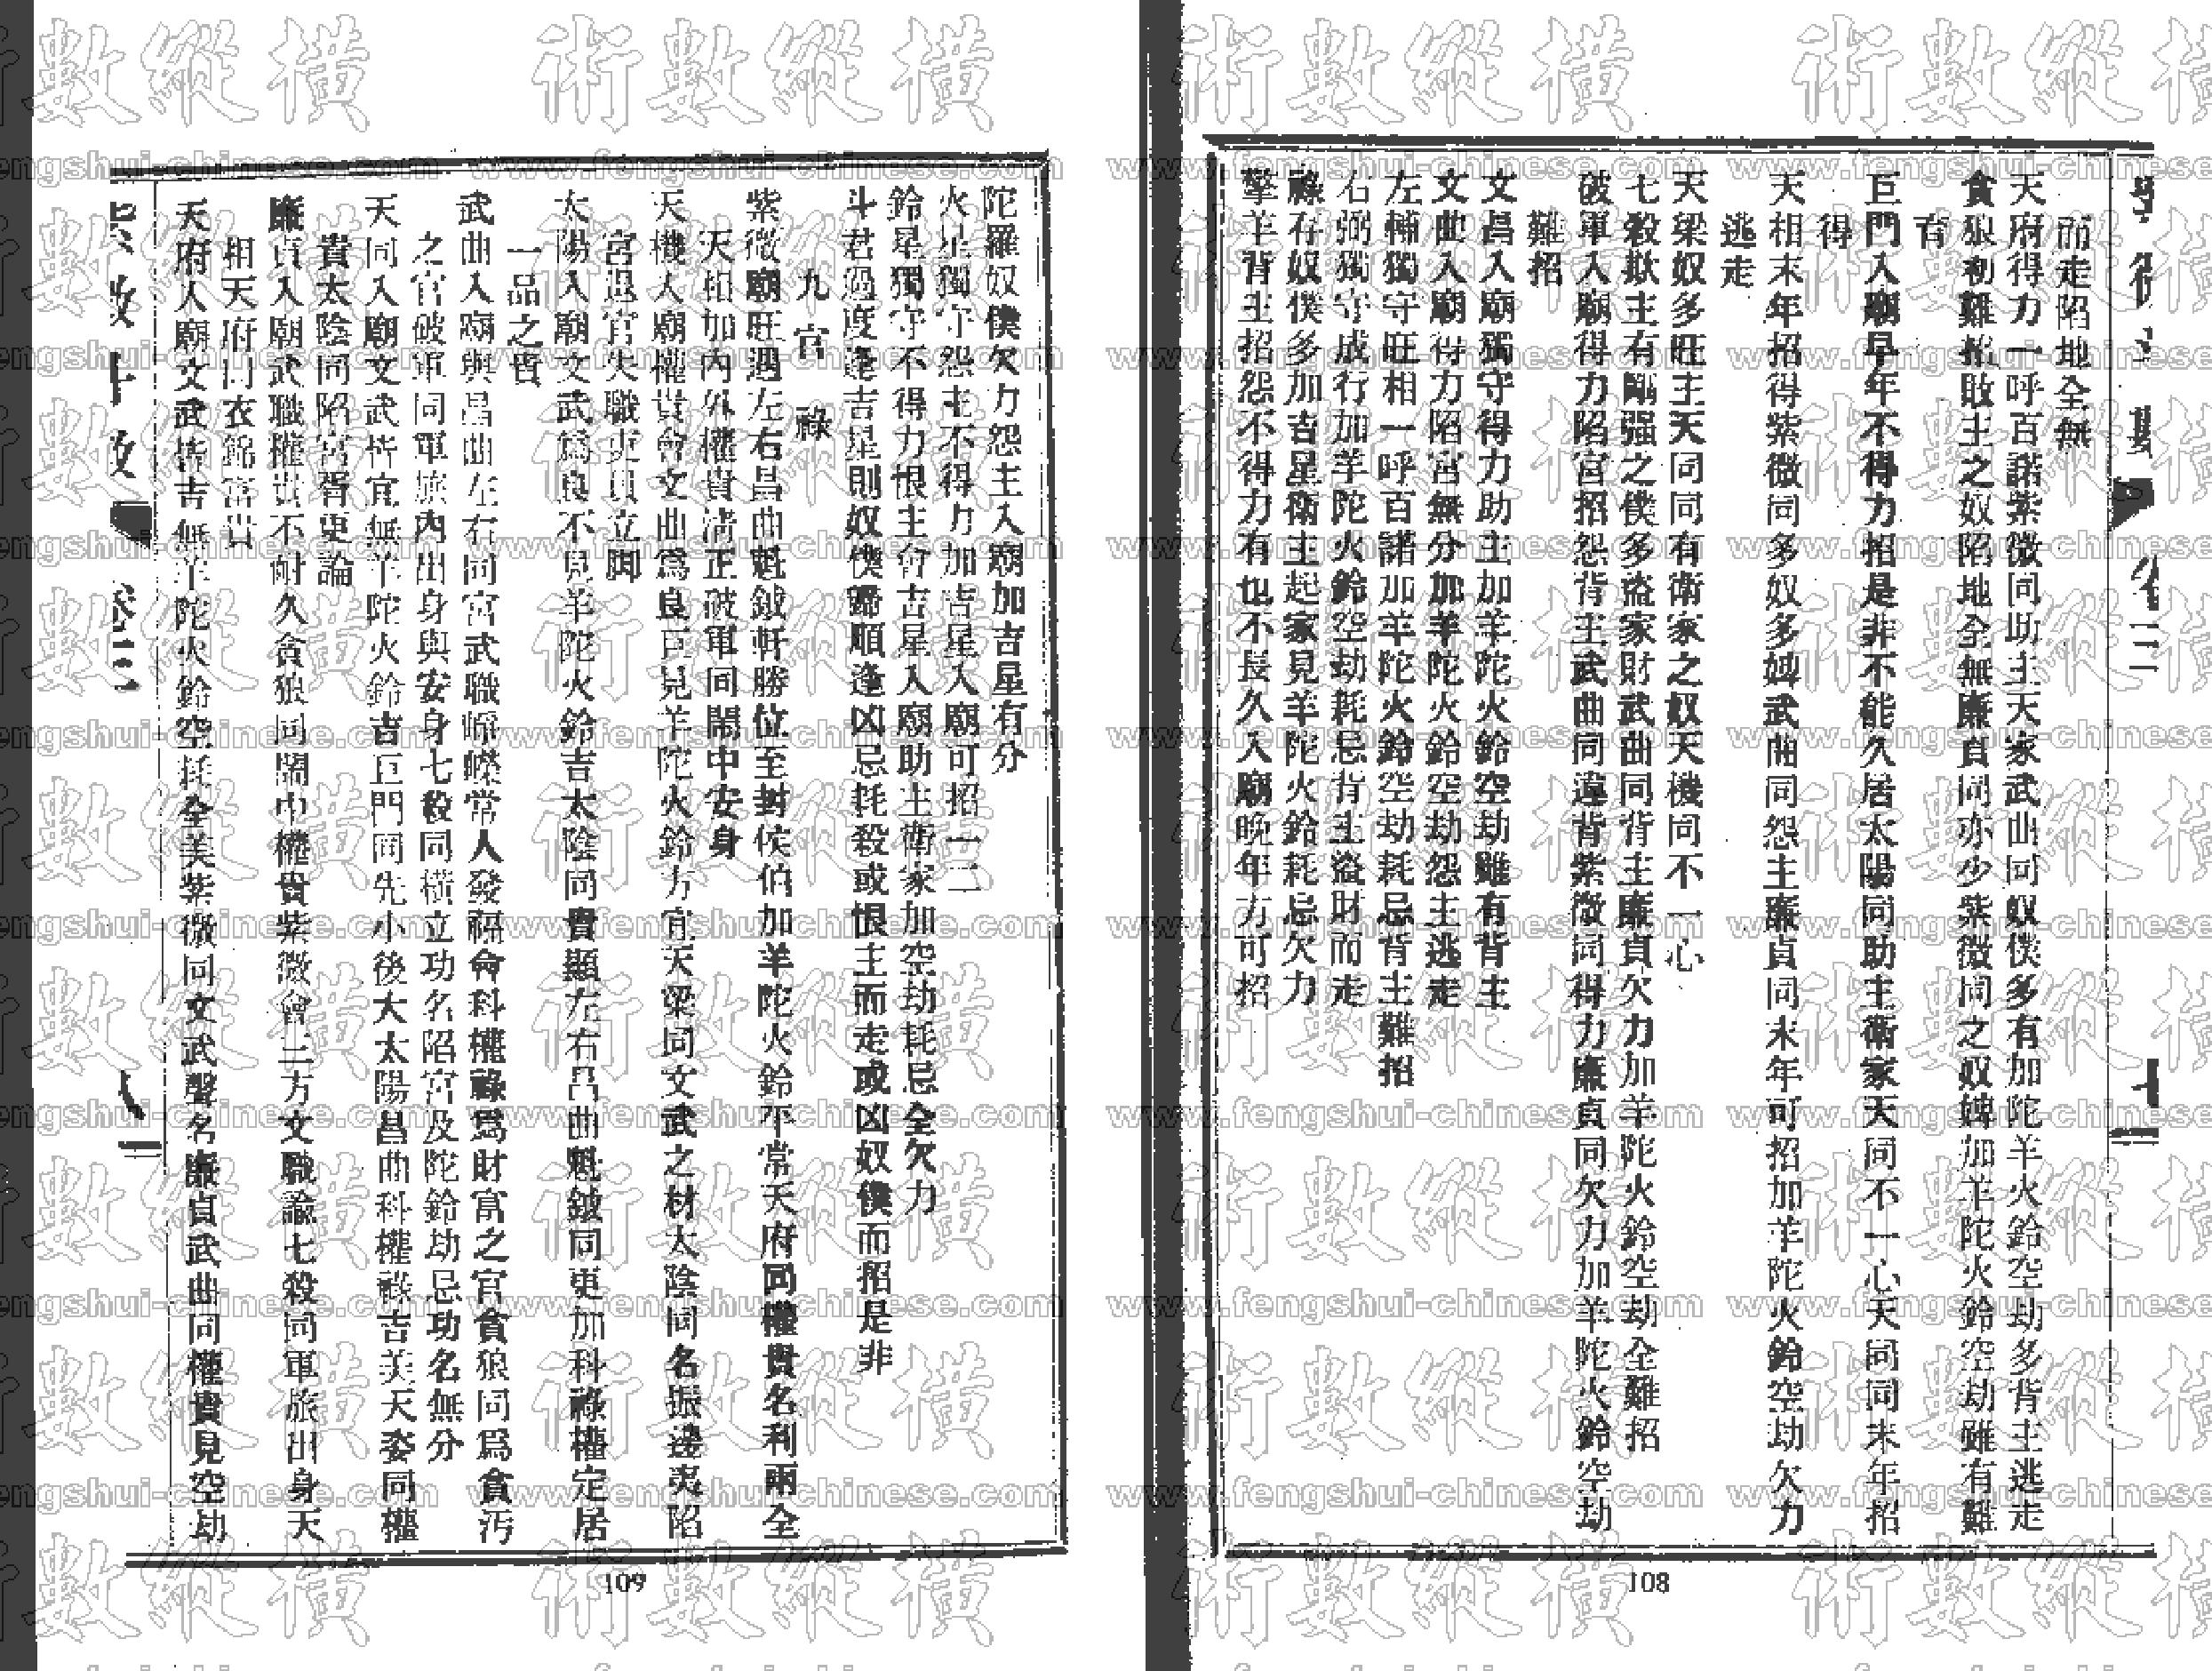 而走陷地全無
天府得力一呼百諾紫微同助主天家武曲同奴僕多有加陀羊火鈴空劫多背主逃走
貪狼初難招敗主之奴陷地全無廉貞同亦少紫微同之奴婢加羊陀火鈴空劫雖有難
育
巨門入廟早年不得力招是非不能久居太陽同助主衛家天同不一心天同同末年招
得
天相末年招得紫微同多奴多婢武曲同怨主廉貞同末年可招加羊陀火鈴空劫欠力
逃走
天梁奴多旺主天同同有衛家之奴天機同不一心
七殺欺主有剛强之僕多盜家財武曲同背主廉貞欠力加羊陀火鈴空劫全難招
破軍入廟得力陷宮招怨背主武曲同違背紫微同得力廉貞同欠力加羊陀火鈴空劫
難招
文昌入廟獨守得力助主加羊陀火鈴空劫雖有背主
文曲入廟得力陷宮無分加羊陀火鈴空劫怨主逃走
左輔獨守旺相一呼百諾加羊陀火鈴空劫耗忌背主難招
右弼獨守成行加羊陀火鈴空劫耗忌背主盜財而走
祿存奴僕多加吉星衛主起家見羊陀火鈴耗忌欠力
擎羊背主招怨不得力有也不長久入廟晚年方可招
109
陀羅奴僕欠力怨主入廟加吉星有分
火星獨守怨主不得力加吉星入廟可招一二
鈴星獨守不得力恨主會吉星入廟助主衛家加空劫耗忌全欠力
斗君過度逢吉星則奴僕歸順逢凶忌耗殺或恨主而走或凶奴僕而招是非
九官祿
紫微廟旺遇左右昌曲魁鉞軒勝位至封侯伯加羊陀火鈴平常天府同權貴名利兩全
天相加內外權貴清正破軍同鬧中安身
天機入廟權貴會文曲爲良臣見羊陀火鈴方宜天梁同文武之材太陰同名振邊夷陷
宮退官失職吏員立脚
太陽入廟文武爲良不見羊陀火鈴吉太陰同貴顯左右昌曲魁鉞同更加科祿權定居
一品之貴
武曲入廟與昌曲左右同宮武職崢嶸常人發福會科權祿爲財富之官貪狼同爲貪汚
之官破軍同軍旅內出身與安身七殺同橫立功名陷宮及陀鈴劫忌功名無分
天同入廟文武皆宜無羊陀火鈴吉巨門同先小後大太陽昌曲科權祿吉美天梁同權
貴太陰同陷宮胥吏論
廉貞入廟武職權貴不耐久貪狼同鬧中權貴紫微會三方文職論七殺同軍旅出身天
相天府同衣錦富貴
天府入廟文武皆吉無羊陀火鈴空耗全美紫微同文武聲名廉貞武曲同權貴見空劫
卷三
八一
108
術數縱橫
www.fengshui-chinese.com